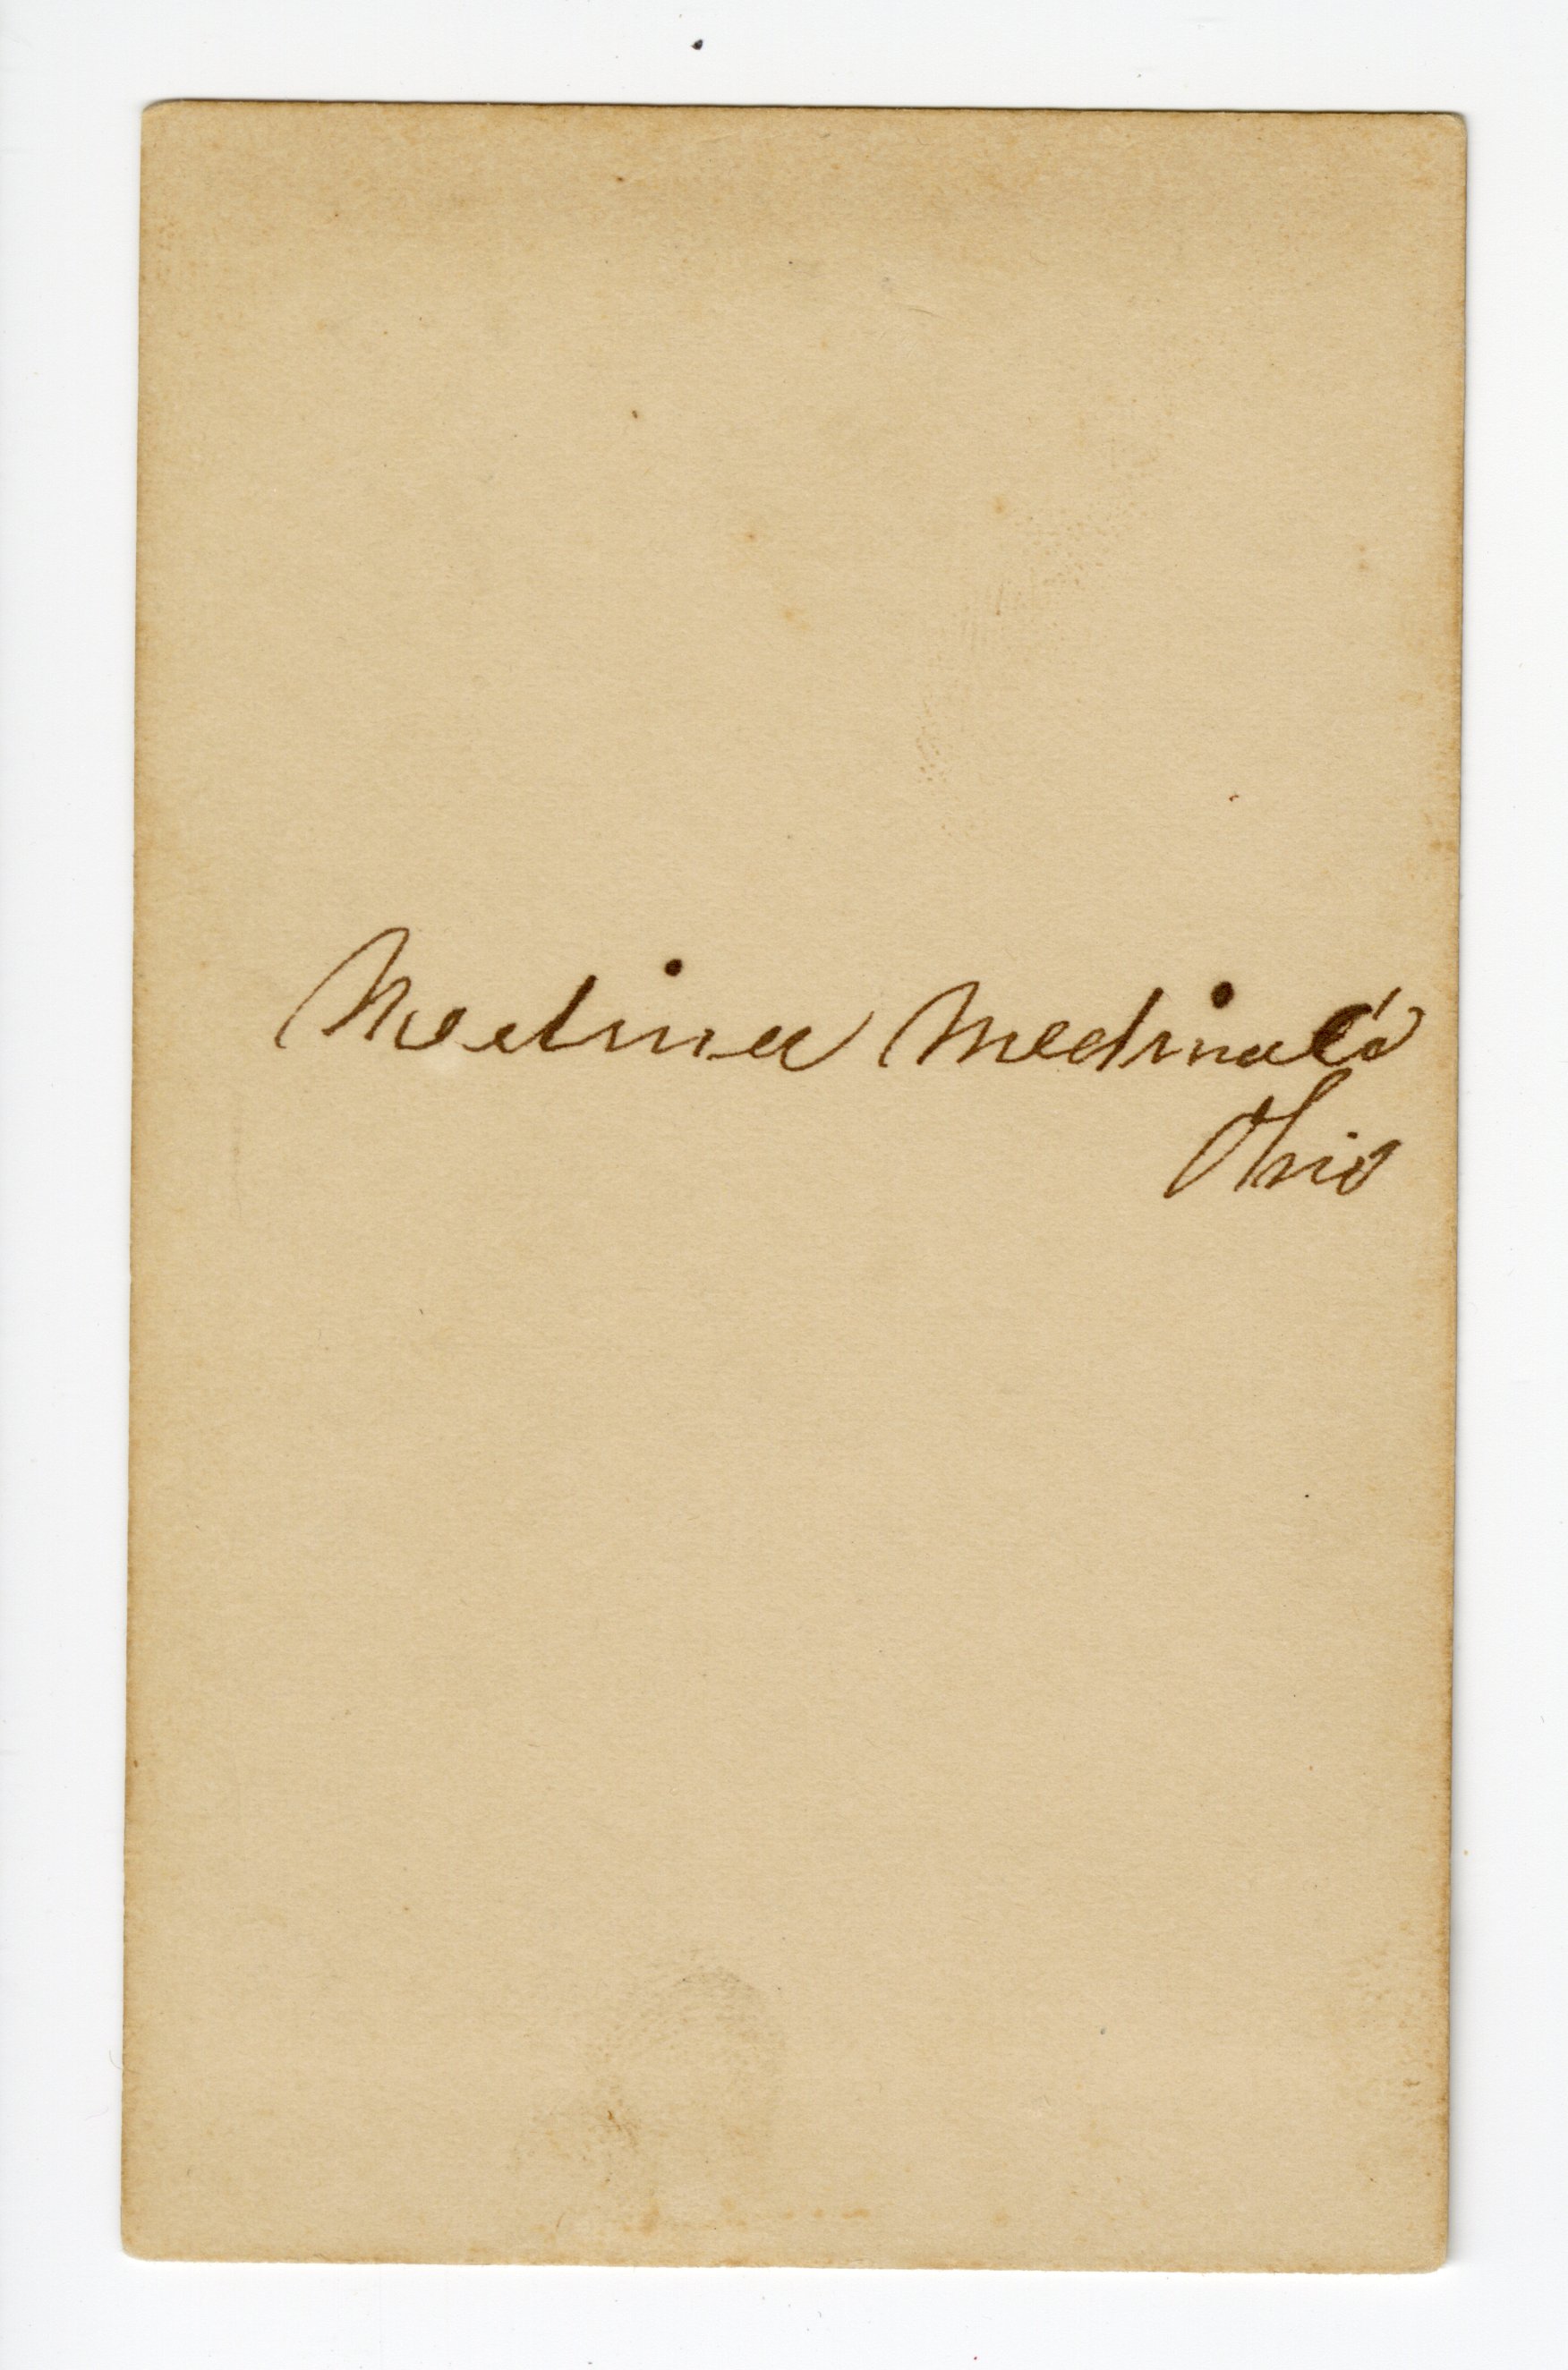 Medina Medina Co
Ohio